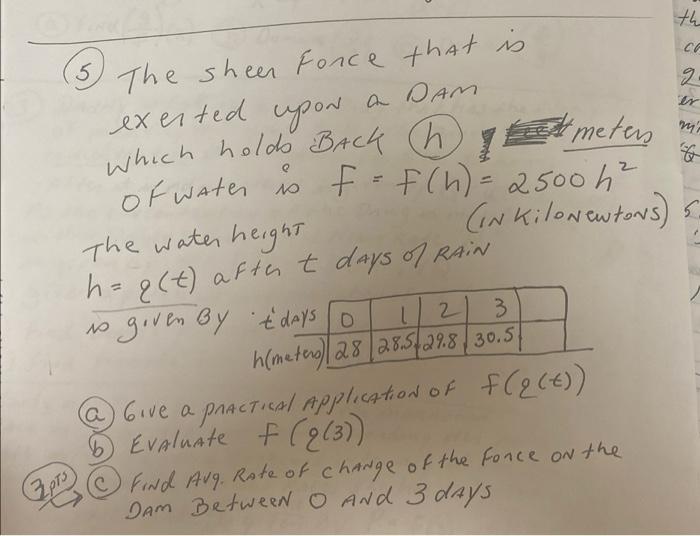 5 The sheer Force that is
exerted upon a DAM
which holds BACK h meters
OF water is f = f(h) = 2500 h²
(IN KiloNewtons)
The water height
h = g(t) after t days of RAIN
is given By t days 0 1 2 3
h(meters) 28 28.5 29.8 30.5
a Give a practical Application of f(g(t))
b Evaluate f(g(3))
3 pts c Find Avg. Rate of change of the Force on the
DAM Between 0 AND 3 days